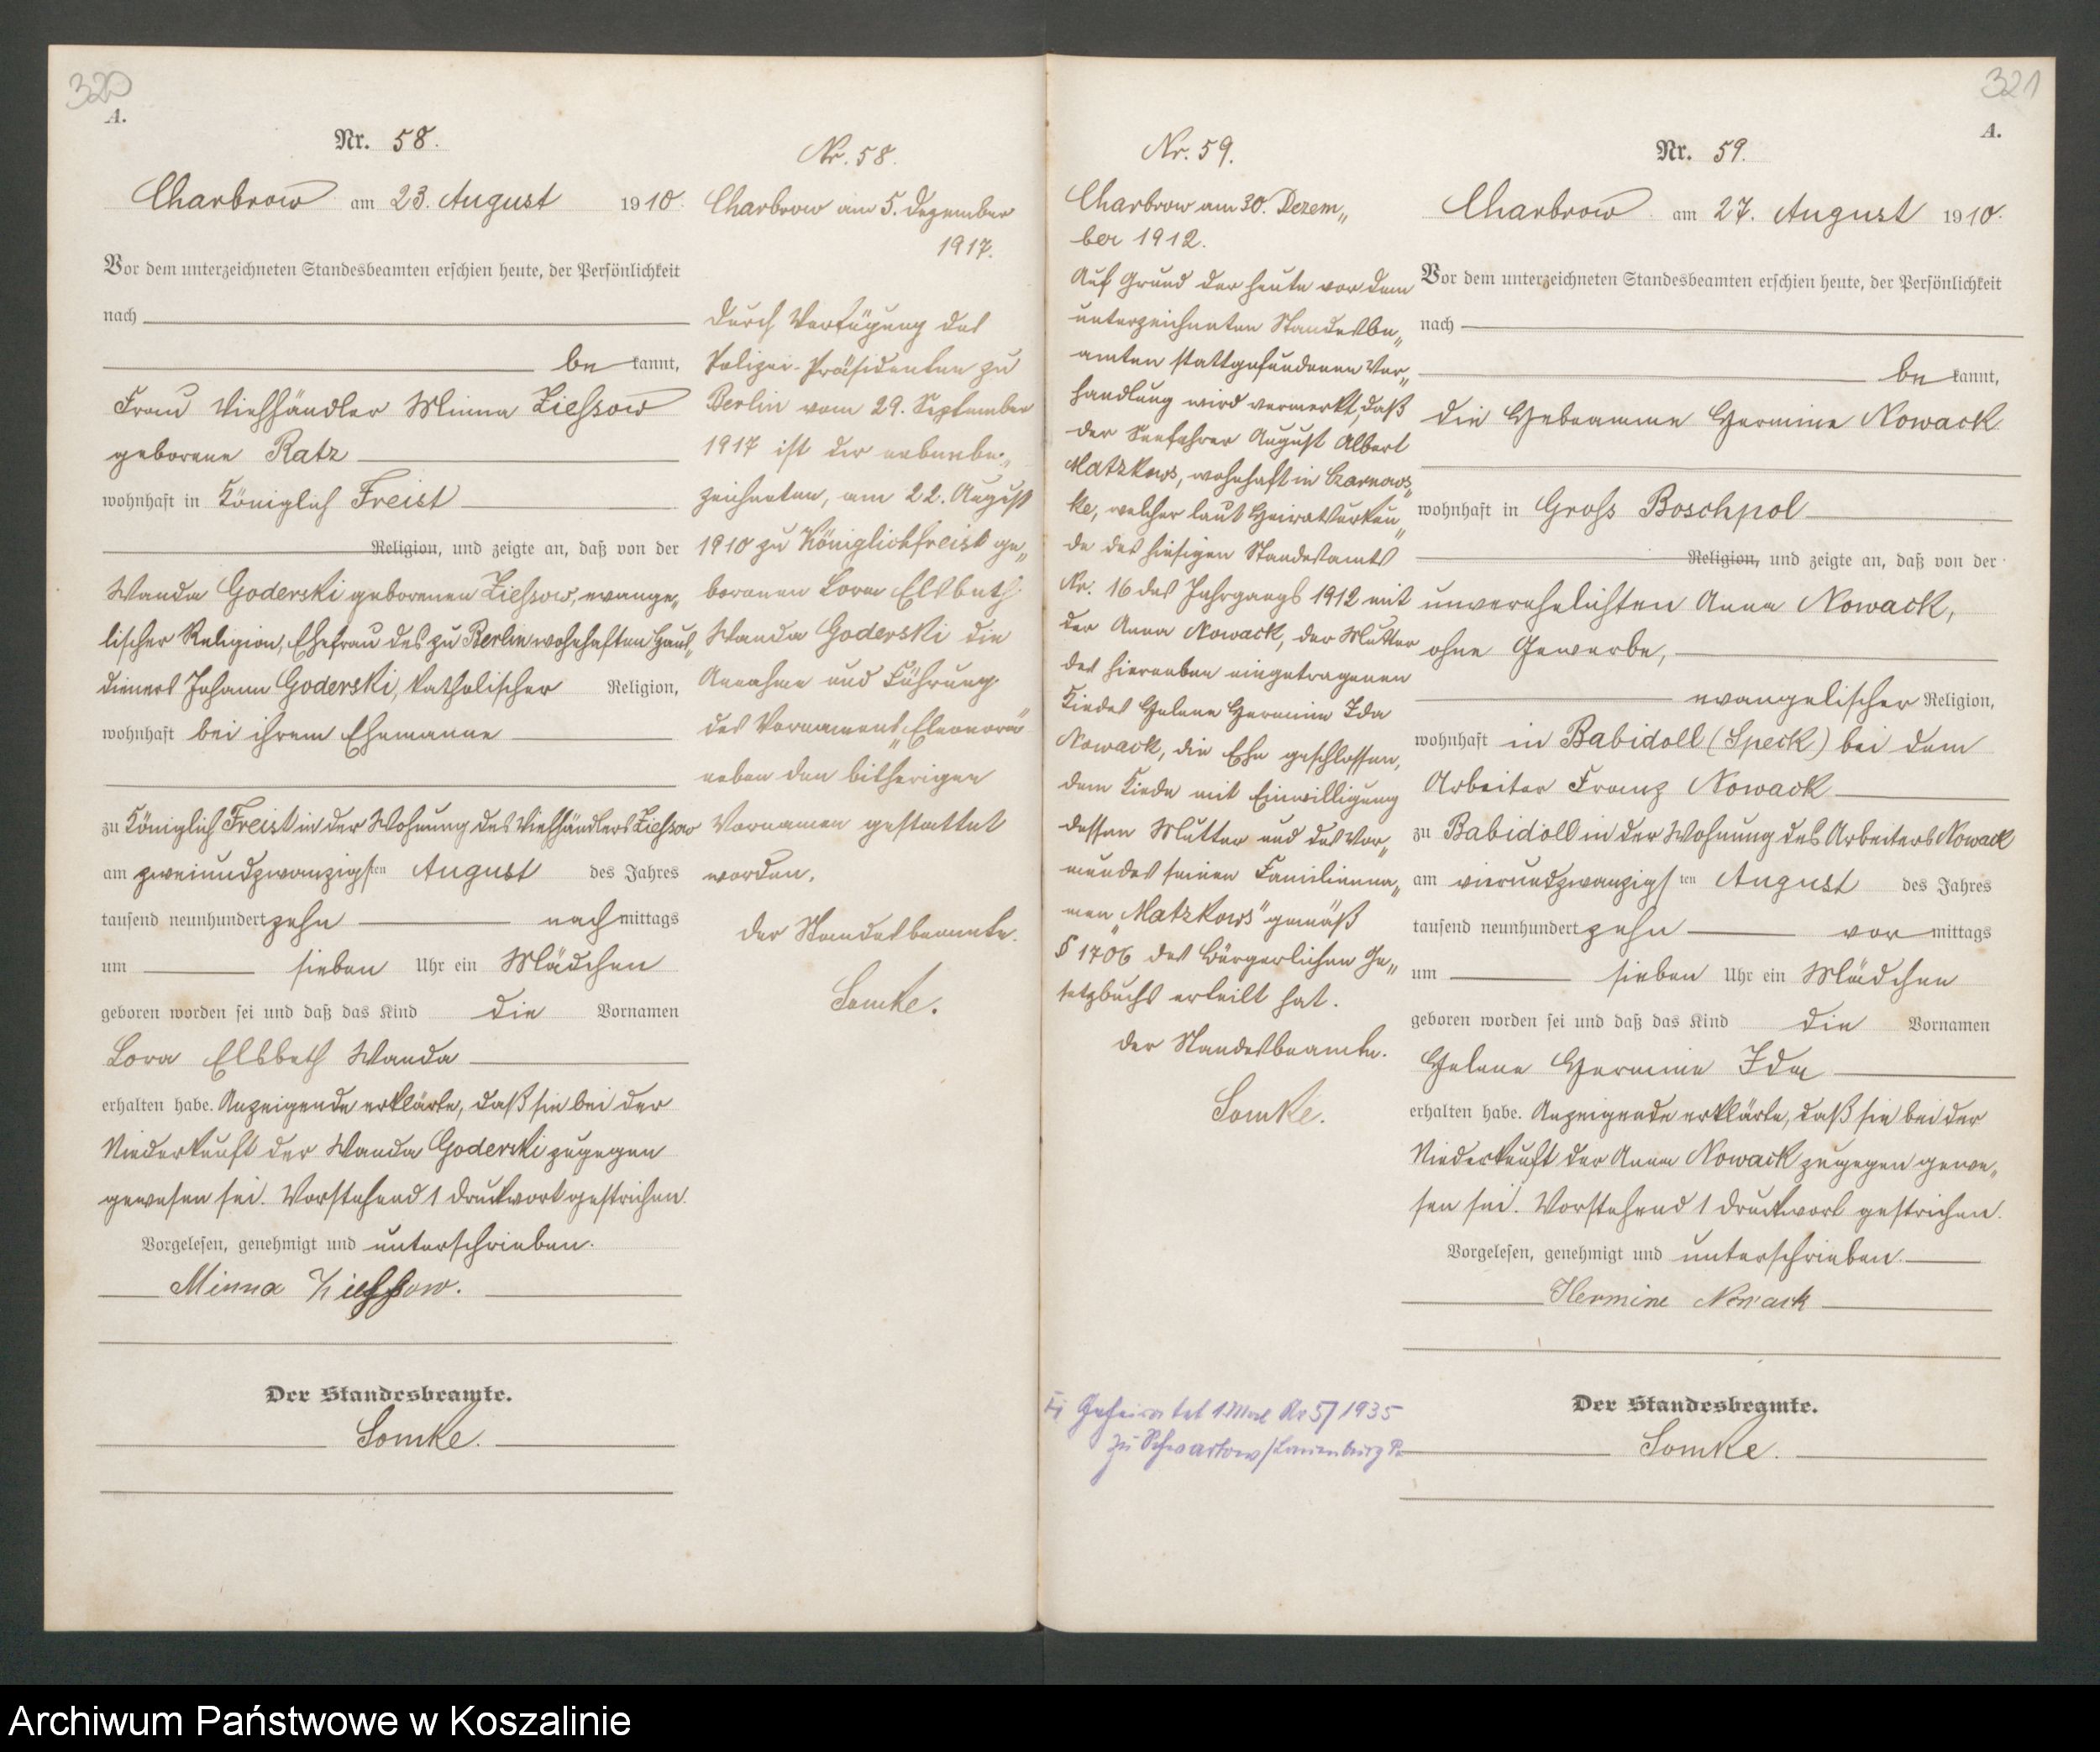 320
A.
Nr. 58.
Charbrow am 23. August 1910.
Vor dem unterzeichneten Standesbeamten erschien heute, der Persönlichkeit
nach
be kannt,
Frau Viehhändler Minna Ziehsow
geborene Ratz
wohnhaft in Königlich Freist
Religion, und zeigte an, daß von der
Wanda Goderski geborenen Ziehsow, evange„
lischer Religion, Ehefrau des zu Berlin wohnhaften Haus„
dieners Johann Goderski, katholischer Religion,
wohnhaft bei ihrem Ehemanne
zu Königlich Freist in der Wohnung des Viehhändlers Ziehsow
am zweiundzwanzigsten August des Jahres
tausend neunhundert zehn nachmittags
um sieben Uhr ein Mädchen
geboren worden sei und daß das Kind die Vornamen
Lora Elsbeth Wanda
erhalten habe. Anzeigende erklärte, daß sie bei der
Niederkunft der Wanda Goderski zugegen
gewesen sei. Vorstehend 1 Druckwort gestrichen.
Vorgelesen, genehmigt und unterschrieben.
Minna Ziehsow.
Der Standesbeamte.
Somke.
Nr. 58.
Charbrow am 5. Dezember
1917.
Durch Verfügung des
Polizei-Präsidenten zu
Berlin vom 29. September
1917 ist der nebenbe„
zeichneten, am 22. August
1910 zu Königlichfreist ge„
borenen Lora Elsbeth
Wanda Goderski die
Annahme und Führung
des Vornamens „Eleonora"
neben den bisherigen
Vornamen gestattet
worden.
Der Standesbeamte.
Somke.
Nr. 59.
Charbrow am 30. Dezem„
ber 1912.
Auf Grund der heute vor dem
unterzeichneten Standesbe„
amten stattgefundenen Ver„
handlung wird vermerkt, daß
der Seefahrer August Albert
Matzkows, wohnhaft in Czarnows„
ke, welcher laut Heiratsurkun„
de des hiesigen Standesamts
Nr. 16 des Jahrgangs 1912 mit
der Anna Nowack, der Mutter
des hierneben eingetragenen
Kindes Helene Hermine Ida
Nowack, die Ehe geschlossen,
dem Kinde mit Einwilligung
dessen Mutter und des Vor„
mundes seinen Familienna„
men „Matzkows" gemäß
§ 1706 des Bürgerlichen Ge„
setzbuchs erteilt hat.
Der Standesbeamte.
Somke.
Geheiratet 1. Mal Nr 5/1935
zu Schwartow/Lauenburg Po
321
A.
Nr. 59.
Charbrow am 27. August 1910.
Vor dem unterzeichneten Standesbeamten erschien heute, der Persönlichkeit
nach
be kannt,
die Hebeamme Hermine Nowack
wohnhaft in Gross Boschpol
Religion, und zeigte an, daß von der
unverehelichten Anna Nowack,
ohne Gewerbe,
evangelischer Religion,
wohnhaft in Babidoll (Speck) bei dem
Arbeiter Franz Nowack
zu Babidoll in der Wohnung des Arbeiters Nowack
am vierundzwanzigsten August des Jahres
tausend neunhundert zehn vormittags
um sieben Uhr ein Mädchen
geboren worden sei und daß das Kind die Vornamen
Helene Hermine Ida
erhalten habe. Anzeigende erklärte, daß sie bei der
Niederkunft der Anna Nowack zugegen gewe„
sen sei. Vorstehend 1 Druckwort gestrichen.
Vorgelesen, genehmigt und unterschrieben.
Hermine Nowack
Der Standesbeamte.
Somke.
Archiwum Państwowe w Koszalinie